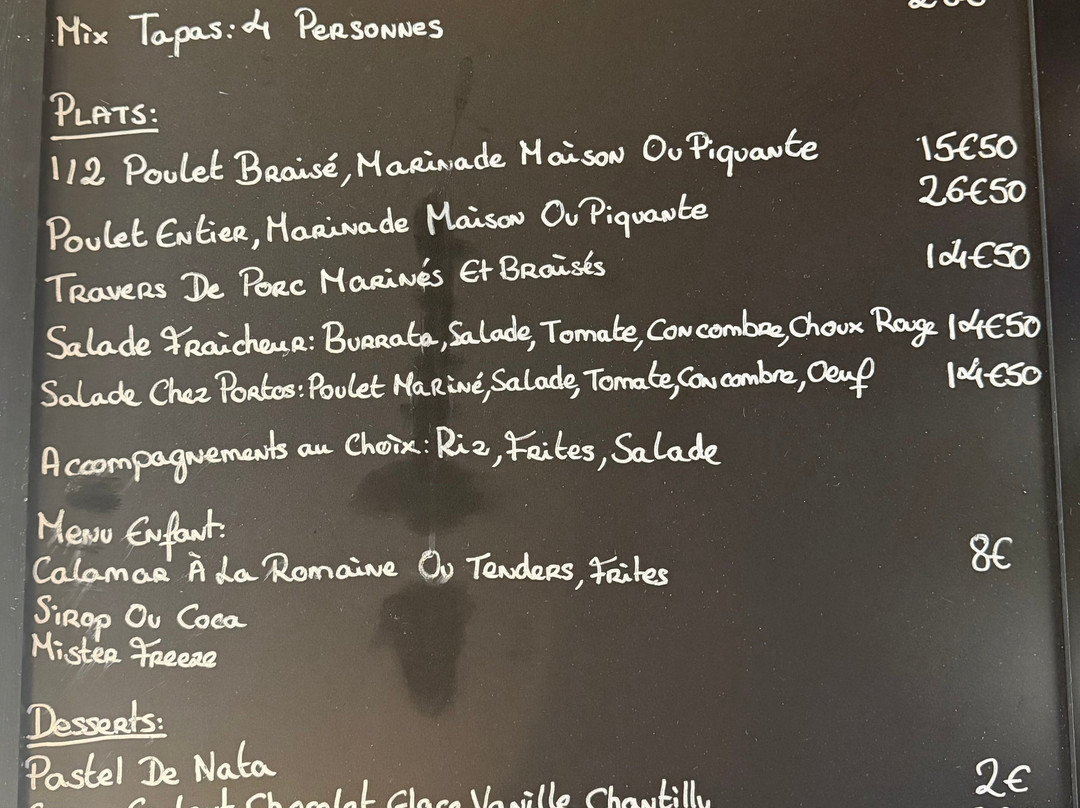 Mix Tapas: 4 Personnes
Plats:
1/2 Poulet Braisé, Marinade Maison Ou Piquante 15€50
Poulet Entier, Marinade Maison Ou Piquante 26€50
Travers De Porc Marinés Et Braisés 14€50
Salade Fraîcheur: Burrata, Salade, Tomate, Concombre, Choux Rouge 14€50
Salade Chez Portos: Poulet Mariné, Salade, Tomate, Concombre, Oeuf 14€50
Accompagnements au Choix: Riz, Frites, Salade
Menu Enfant:
Calamar À La Romaine Ou Tenders, Frites 8€
Sirop Ou Coca
Mister Freeze
Desserts:
Pastel De Nata 2€
Chocolat Glace Vanille Chantilly